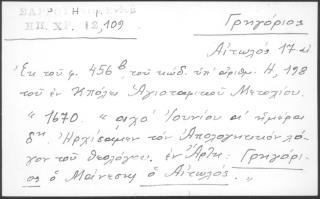 ΗΠ. ΧΡ. 12,109
Γρηγόριος
Αἰτωλός 17 αἰ
Ἐκ τοῦ φ. 456β, τοῦ κώδ. ὑπ' ἀριθμ. Η, 198
τοῦ ἐν Κπόλει Ἁγιοταφιτικοῦ Μετοχίου.
" 1670. " αχο' Ἰουνίου αἱ ἡμέραι
δη. Ἀρχίσαμεν τὸν Ἀπολογητικὸν λό-
γον τοῦ Θεολόγου. ἐν Ἄρτῃ: Γρηγόρι-
ος ὁ Μαίνεσης ὁ Αἰτωλός. "